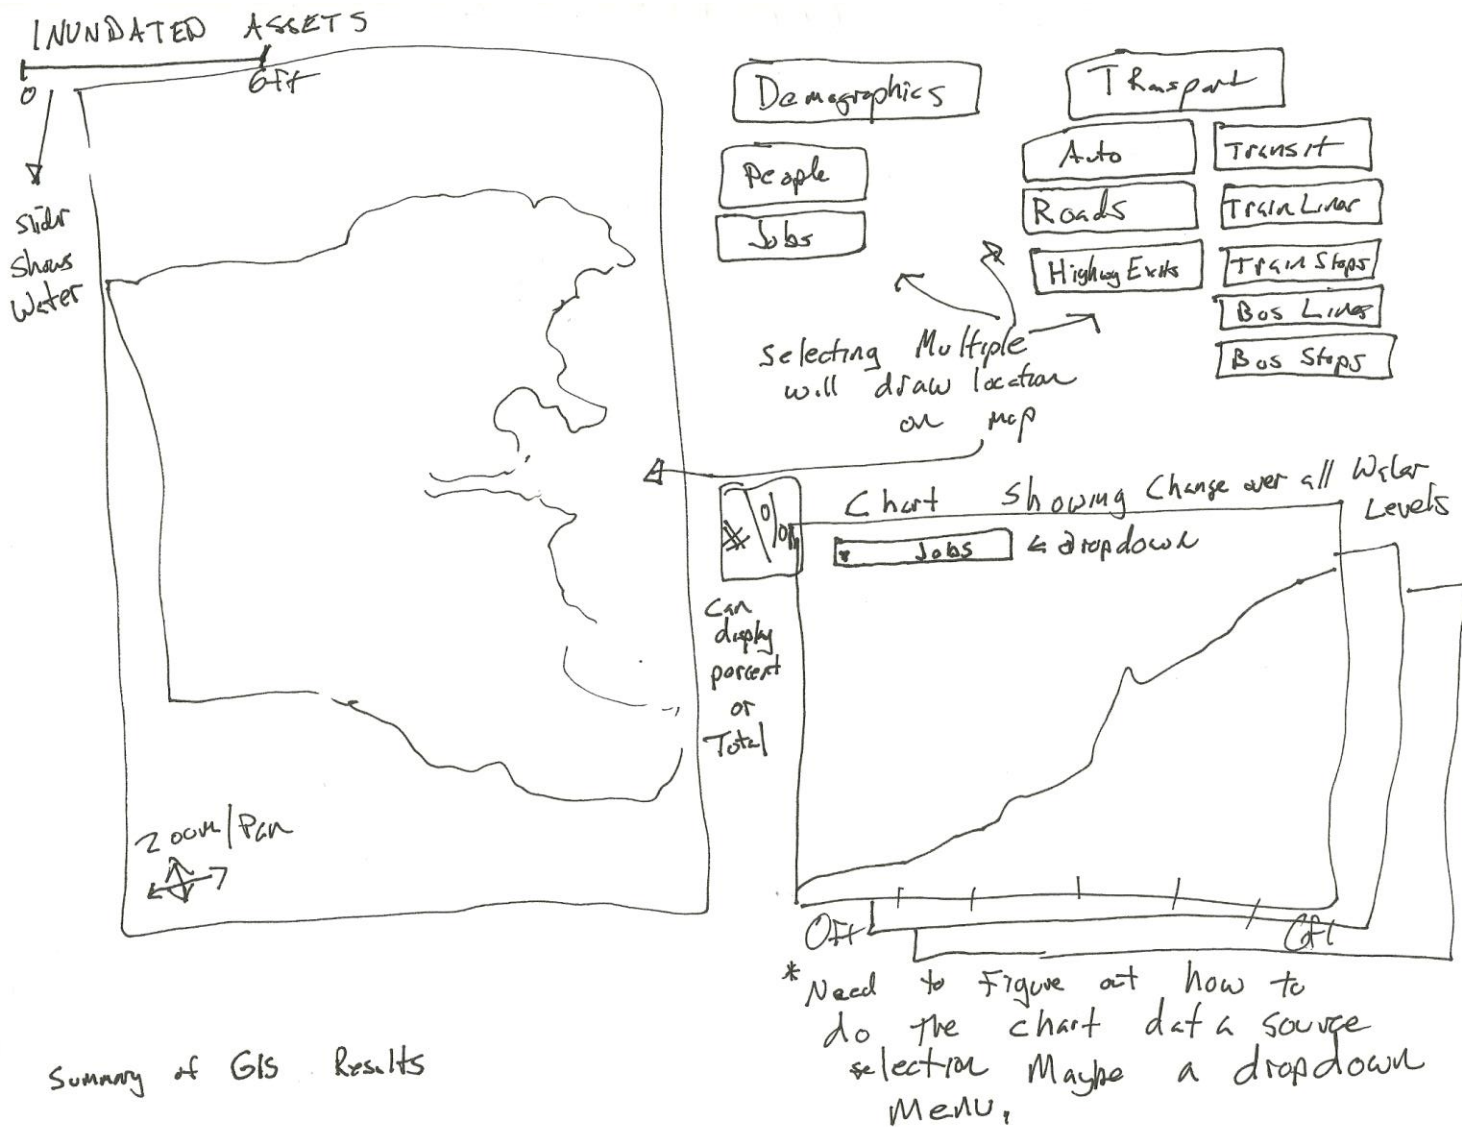 INUNDATED ASSETS
0
6ft
slider
shows
water
Demographics
People
Jobs
Transport
Auto
Roads
Highway Exits
Transit
Train Lines
Train Stops
Bus Lines
Bus Stops
Selecting Multiple
will draw location
on map
#/%
Can
display
percent
or
Total
Chart Showing Change over all Water
Levels
Jobs
← dropdown
0ft
6ft
Zoom/Pan
* Need to Figure out how to
do the chart data source
selection Maybe a dropdown
menu.
Summary of GIS Results